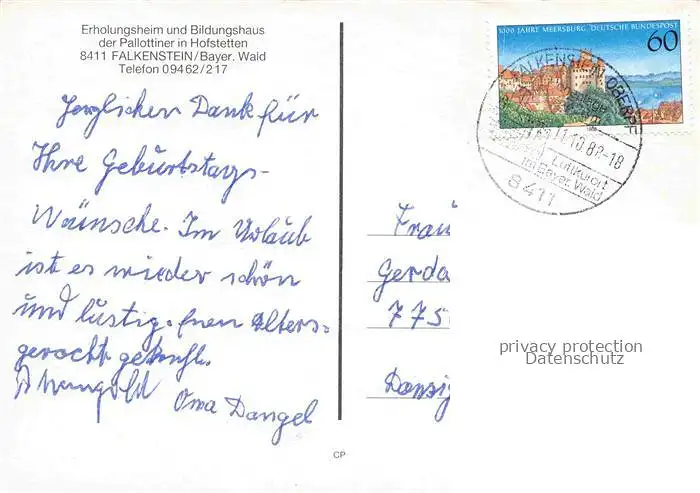 Erholungsheim und Bildungshaus
der Pallottiner in Hofstetten
8411 FALKENSTEIN/Bayer. Wald
Telefon 09462/217
Herzlichen Dank für
Ihre Geburtstags-
Wünsche. Im Urlaub
ist es wieder schön
und lustig. Alters-
gerecht
A Mangold
Oma Dangel
CP
1000 JAHRE MEERSBURG, DEUTSCHE BUNDESPOST
60
FALKENSTEIN, OBERPF
11.10.88-18
Luftkurort
im Bayer. Wald
8411
Frau
Gerda
775
Danzig
privacy protection
Datenschutz